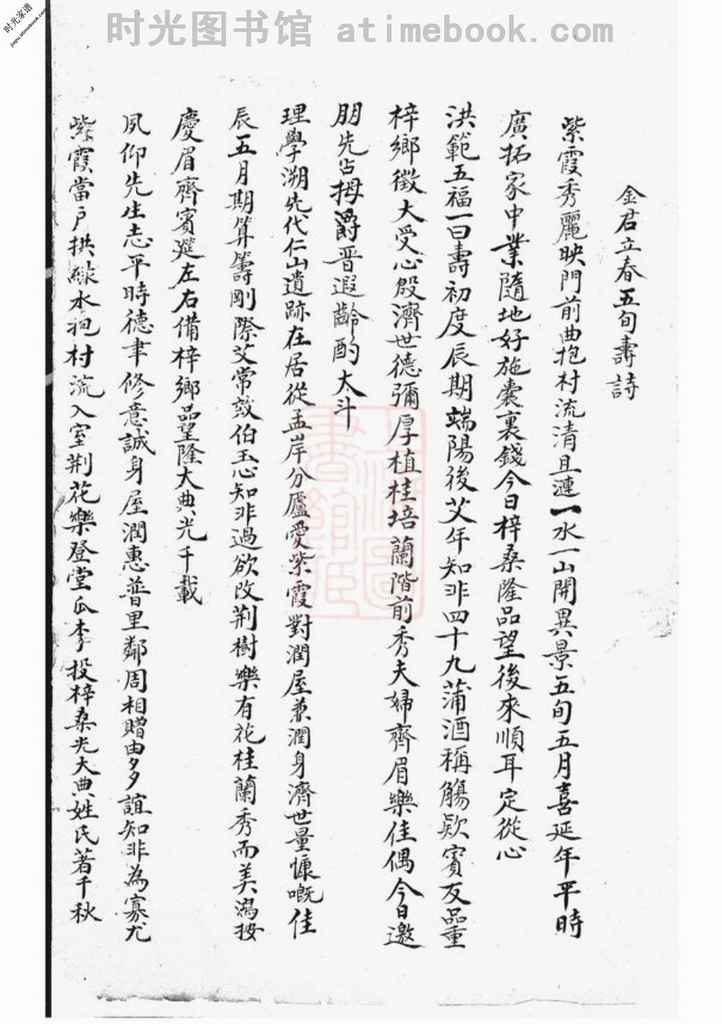 时光图书馆 atimebook.com
时光家谱
jiapu.atimebook.com
金君立春五旬壽詩
紫霞秀麗映門前曲抱村流清且漣一水一山開異景五旬五月喜延年平時
廣拓家中業隨地好施囊裏錢今日梓桑隆品望後來順耳定從心
洪範五福一曰壽初度辰期端陽後艾年知非四十九蒲酒稱觴欵賓友品重
梓鄉徵大受心殷濟世德彌厚植桂培蘭階前秀夫婦齊眉樂佳偶今日邀
朋先占拇爵晋遐齡酌大斗
理學溯先代仁山遺跡在居從孟岸分廬愛紫霞對潤屋兼潤身濟世量慷嘅佳
辰五月期算籌剛際艾常效伯玉心知非過欲改荆樹樂有花桂蘭秀而美瀉按
慶眉齊賓筵左右備梓鄉品望隆大典光千載
夙仰先生志平時德聿修意誠身屋潤惠普里鄰周相贈由多誼知非為寡尤
紫霞當户拱綠水抱村流入室荆花樂登堂瓜李投梓桑光大典姓氏著千秋